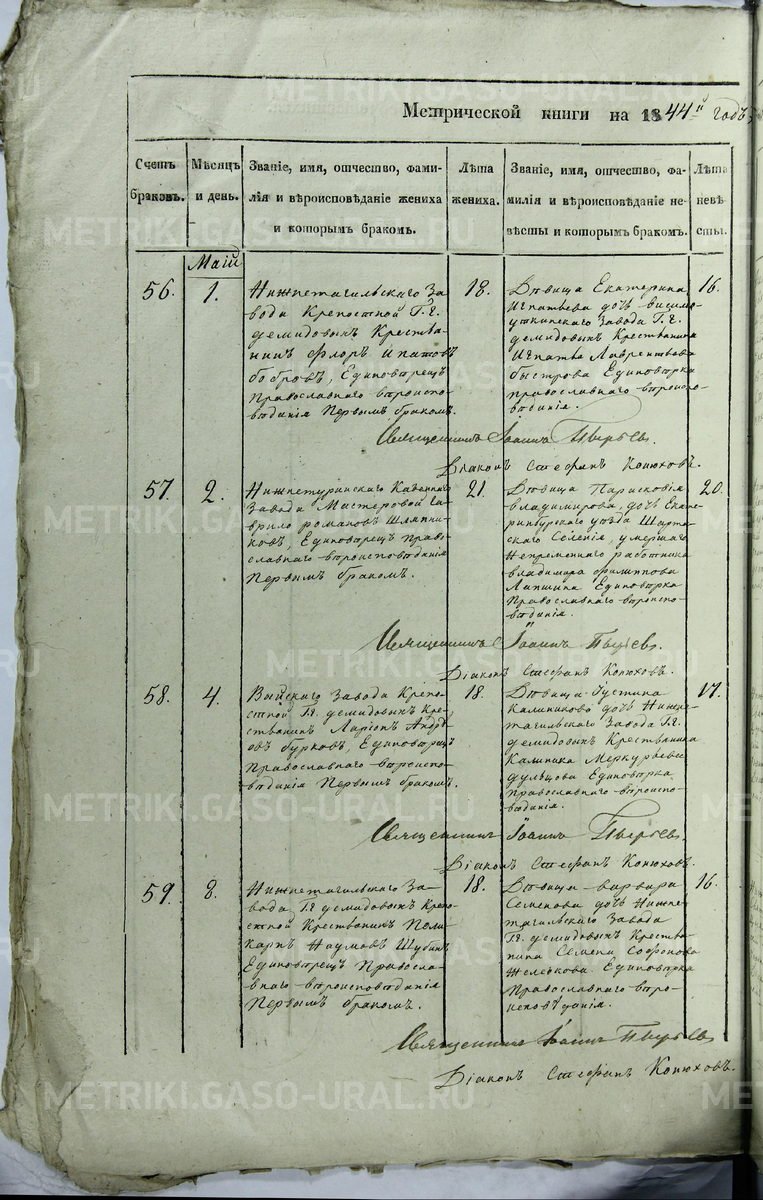 Метрической книги на 1844й годъ,
Счетъ браковъ.
Мѣсяцъ и день.
Званіе, имя, отчество, фами-
лія и вѣроисповѣданіе жениха
и которымъ бракомъ.
Лѣта жениха.
Званіе, имя, отчество, фа-
милія и вѣроисповѣданіе не-
вѣсты и которымъ бракомъ.
Лѣта невѣ-
сты.
Маій
56.
1.
Нижнетагильскаго За-
вода Крепостной Г.г.
демидовыхъ Крестья-
нинъ Флоръ Ипатовъ
бобровъ, Единоверецъ
Православнаго вѣроиспо-
вѣданія Первымъ бракомъ.
18.
Дѣвица Екатерина
Игнатьева дочь висимо
уткинскаго Завода Г.г.
демидовыхъ Крестьянина
Игнатья Лаврентьева
быстрова Единовѣрка
православнаго вѣроиспо-
вѣданія.
16.
Священникъ Іоаннъ Пырьевъ.
Діаконъ Стефанъ Конюховъ.
57.
2.
Нижнетуринскаго Казеннаго
Завода Мастеровой Га-
врило романовъ
Единовѣрецъ Право-
славнаго вѣроисповѣданія
Первымъ бракомъ.
21.
Дѣвица Парасковія
владимирова, дочь Екате-
ринбургскаго уѣзда Шарта-
скаго Селенія, умершаго
Непременнаго работника
владимира филиппова
Единовѣрка
Православнаго вѣроиспо-
вѣданія.
20.
Священникъ Іоаннъ Пырьевъ.
Діаконъ Стефанъ Конюховъ.
58.
4.
Выйскаго Завода Крепо-
стной Г.г. демидовыхъ Кре-
стьянинъ Ларіонъ Андре-
евъ бурковъ, Единовѣрецъ
Православнаго вѣроиспо-
вѣданія Первымъ бракомъ.
18.
Дѣвица Густина
Калинникова дочь Нижне-
тагильскаго Завода Г.г.
демидовыхъ Крестьянина
Калинника Меркурьева
дульцова Единовѣрка
православнаго вѣроиспо-
вѣданія.
17.
Священникъ Іоаннъ Пырьевъ.
Діаконъ Стефанъ Конюховъ.
59.
8.
Нижнетагильскаго За-
вода, Г.г. демидовыхъ Крепо-
стной Крестьянинъ Поли-
карпъ Наумовъ Шубинъ
Единовѣрецъ Правосла-
внаго вѣроисповѣданія
Первымъ бракомъ.
18.
Дѣвица варвара
Семенова дочь Нижне-
тагильскаго Завода
Г.г. демидовыхъ Крестья-
нина Семена софонова
Желебкова Единовѣрка
Православнаго вѣро-
исповѣданія.
16.
Священникъ Іоаннъ Пырьевъ
Діаконъ Стефанъ Конюховъ.
METRIKI.GASO-URAL.RU